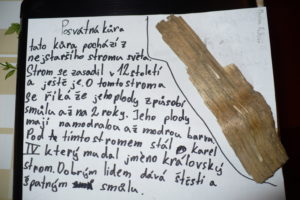 Posvátná kůra
tato kůra pochází z
nejstaršího stromu světa
Strom se zasadil v 12 století
a ještě je. O tomto stroma
se říká že jeho plody způsobí
smůlu až na 2 roky. Jeho plody
mají namodralou až modrou barvu
Pod tímto stromem stál Karel
IV. který mu dal jméno královský
strom. Dobrým lidem dává štěstí a
špatným smůlu.